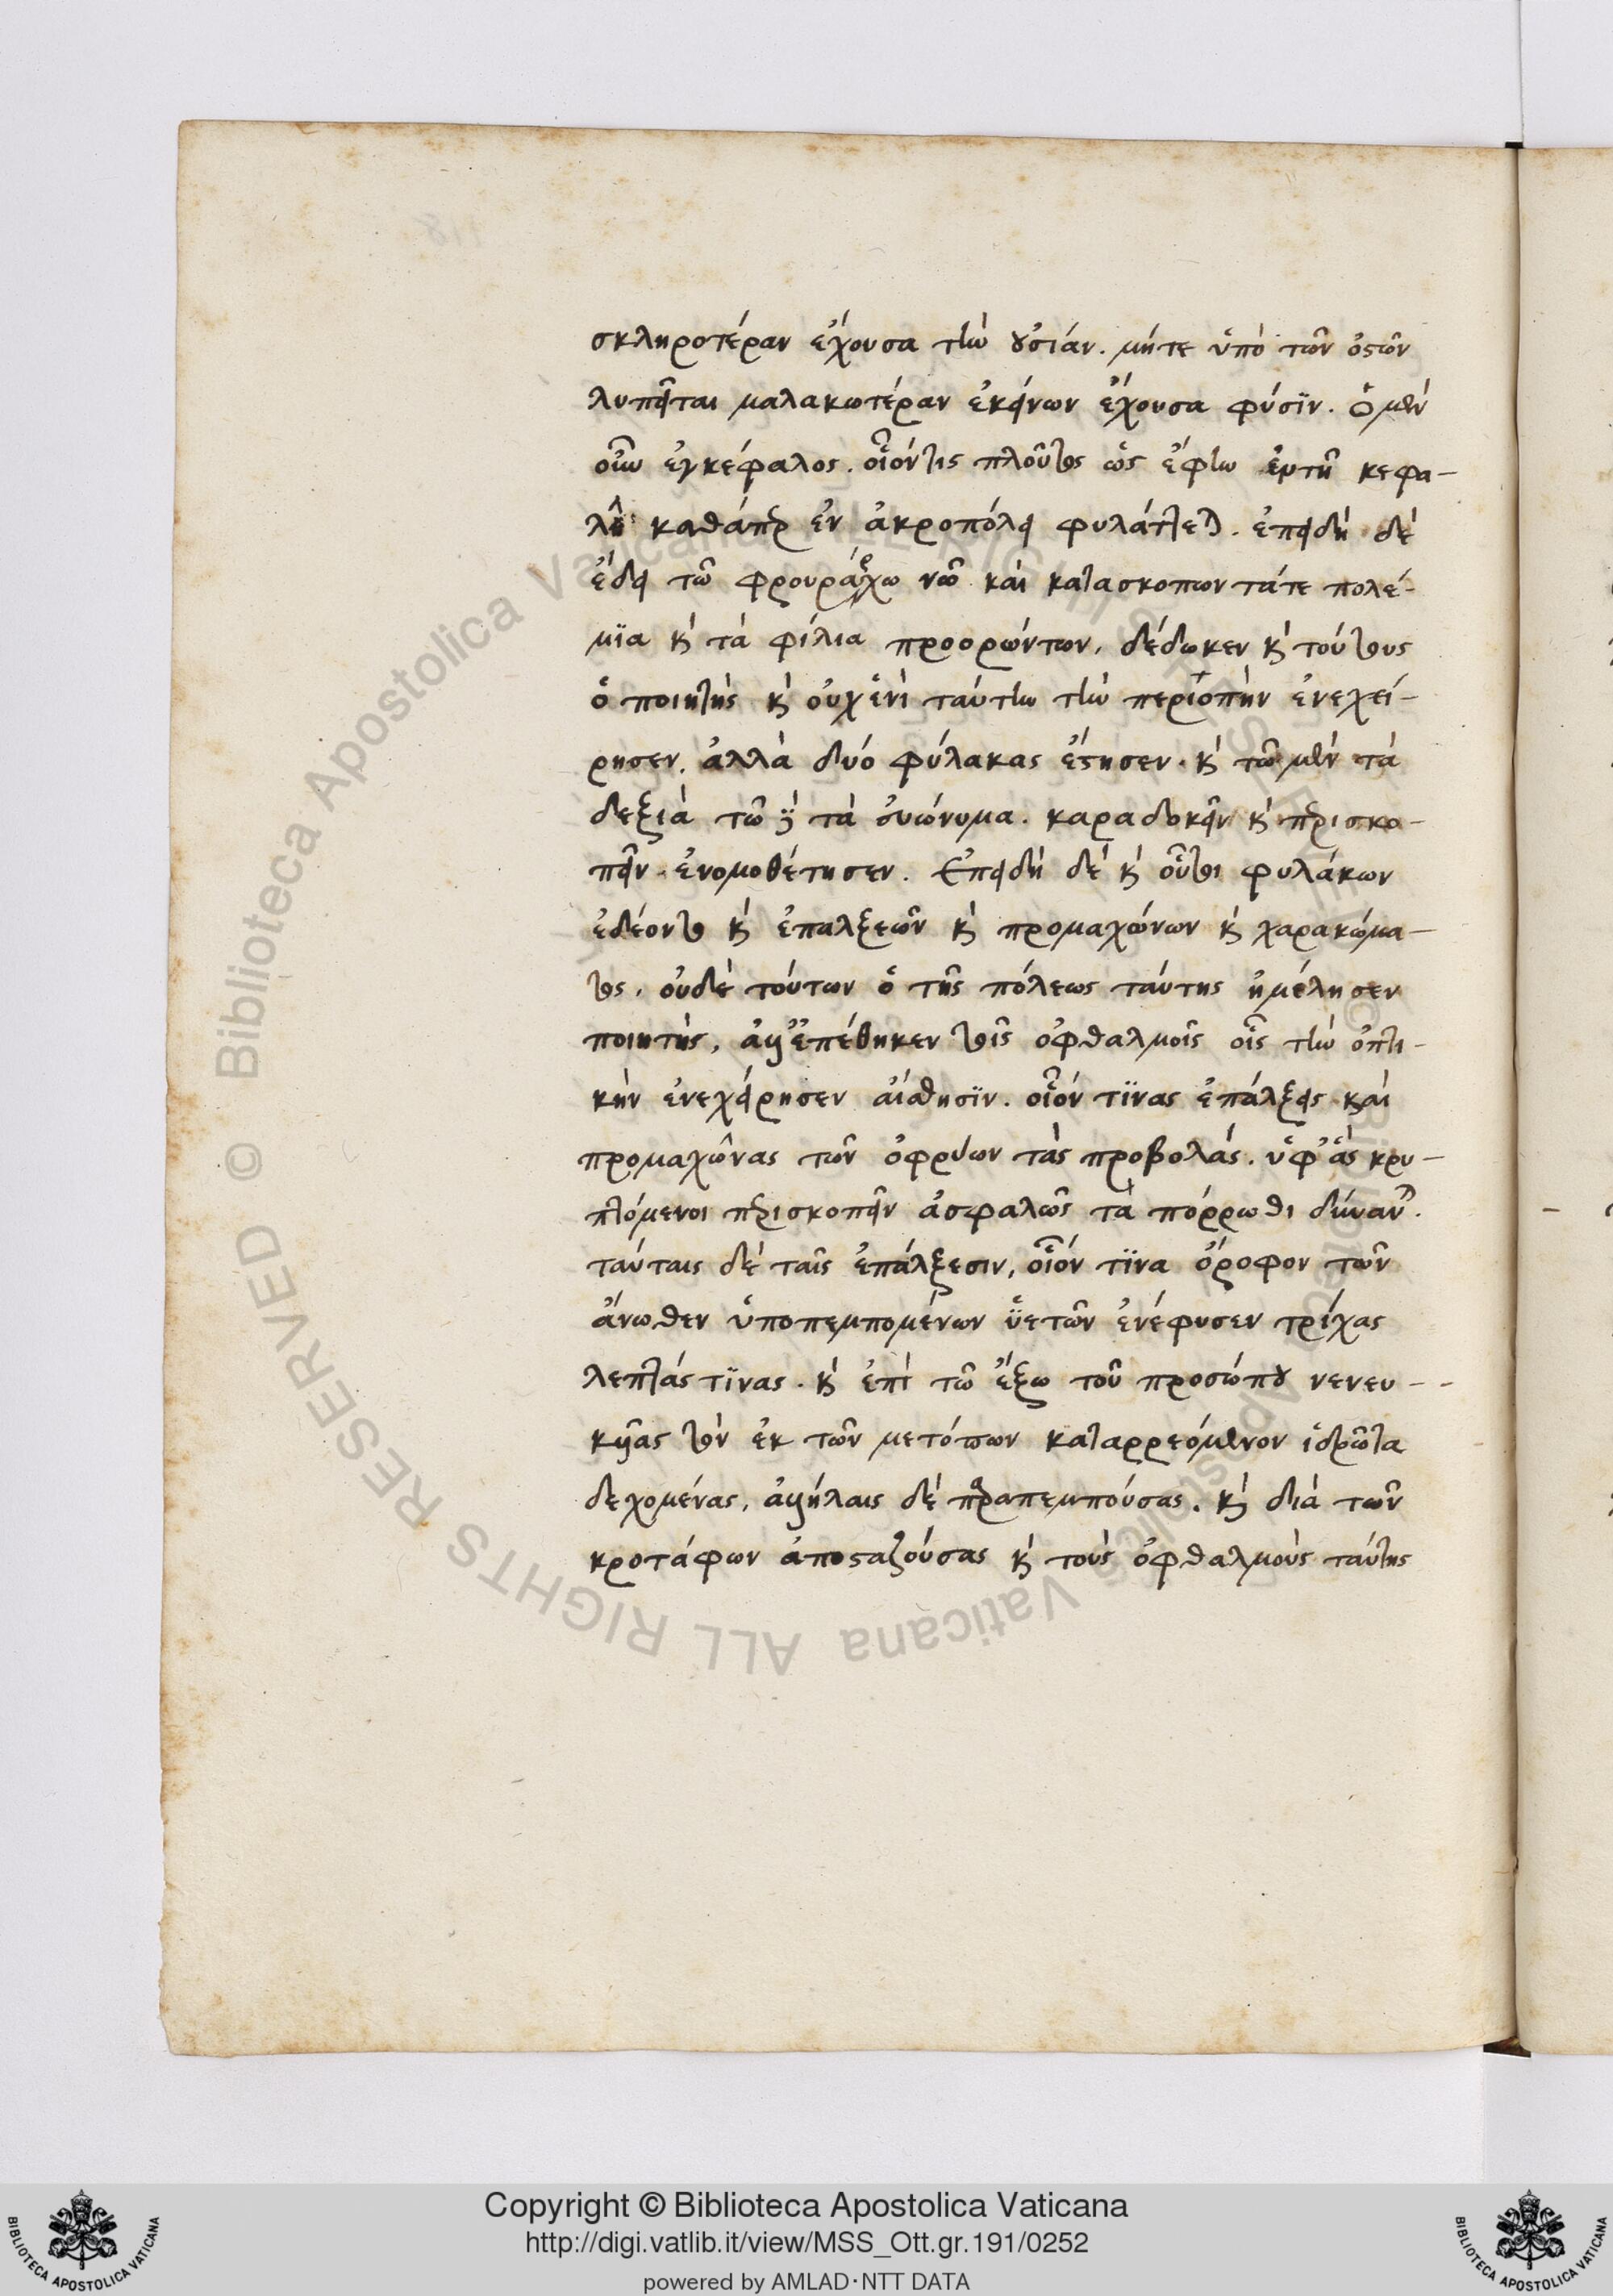 σκληροτέραν ἔχουσα τὴν οὐσίαν. μήτε ὑπὸ τῶν ὀστῶν
λυπῆται μαλακωτέραν ἐκείνων ἔχουσα φύσϊν. ὁ μὲν
οὖν ἐγκέφαλος. οἷόντις πλοῦτος ὡς ἔφην ἐν τῆ κεφα-
λῆ καθάπερ ἐν ἀκροπόλει φυλάττεται. ἐπειδὴ δὲ
ἔδει τῶ φρουράρχω νῶ καὶ κατασκοπων τάτε πολέ-
μϊα κ τὰ φίλια προορώντων, δέδωκεν κ τούτους
ὁ ποιητὴς κ οὐχενὶ ταύτην τὴν περϊοπὴν ἐνεχεί-
ρησεν. ἀλλὰ δυό φύλακας ἔστησεν. κ τῶ μὲν τὰ
δεξιὰ τῶ δὲ τὰ εὐώνυμα. καραδοκεῖν κ περισκο-
πεῖν ἐνομοθέτησεν. ἐπειδὴ δὲ κ οὗτοι φυλάκων
ἐδέοντο κ ἐπαλξεῶν κ προμαχώνων κ χαρακώμα-
τος, οὐδὲ τούτων ὁ τῆς πόλεως ταύτης ἠμέλησεν
ποιητὴς, ἀλλ' ἐπέθηκεν τοῖς ὀφθαλμοῖς οἷς τὴν ὀπτι-
κὴν ἐνεχείρησεν αἴσθησϊν. οἷόν τϊνας ἐπάλξεις καὶ
προμαχῶνας τῶν ὀφρύων τὰς προβολάς. ὑφ' ἃς κρυ-
πτόμενοι περισκοπεῖν ἀσφαλῶς τὰ πόρρωθι δύναν.
ταύταις δὲ ταῖς ἐπάλξεσιν, οἷόν τϊνα ὄροφον τῶν
ἄνωθεν ὑποπεμπομένων ὑετῶν ἐνέφυσεν τρίχας
λεπτάς τϊνας. κ ἐπὶ τῶ ἔξω τοῦ προσώπου νενευ--
κυίας τὸν ἐκ τῶν μετόπων καταρρεόμενον ἱδρῶτα
δεχομένας, ἀλλήλαις δὲ παραπεμπούσας. κ διὰ τῶν
κροτάφων ἀποσταζούσας κ τοὺς ὀφθαλμοὺς ταύτης
Copyright © Biblioteca Apostolica Vaticana
http://digi.vatlib.it/view/MSS_Ott.gr.191/0252
powered by AMLAD·NTT DATA
© Biblioteca Apostolica Vaticana ALL RIGHTS RESERVED
BIBLIOTECA APOSTOLICA VATICANA
BIBLIOTECA APOSTOLICA VATICANA